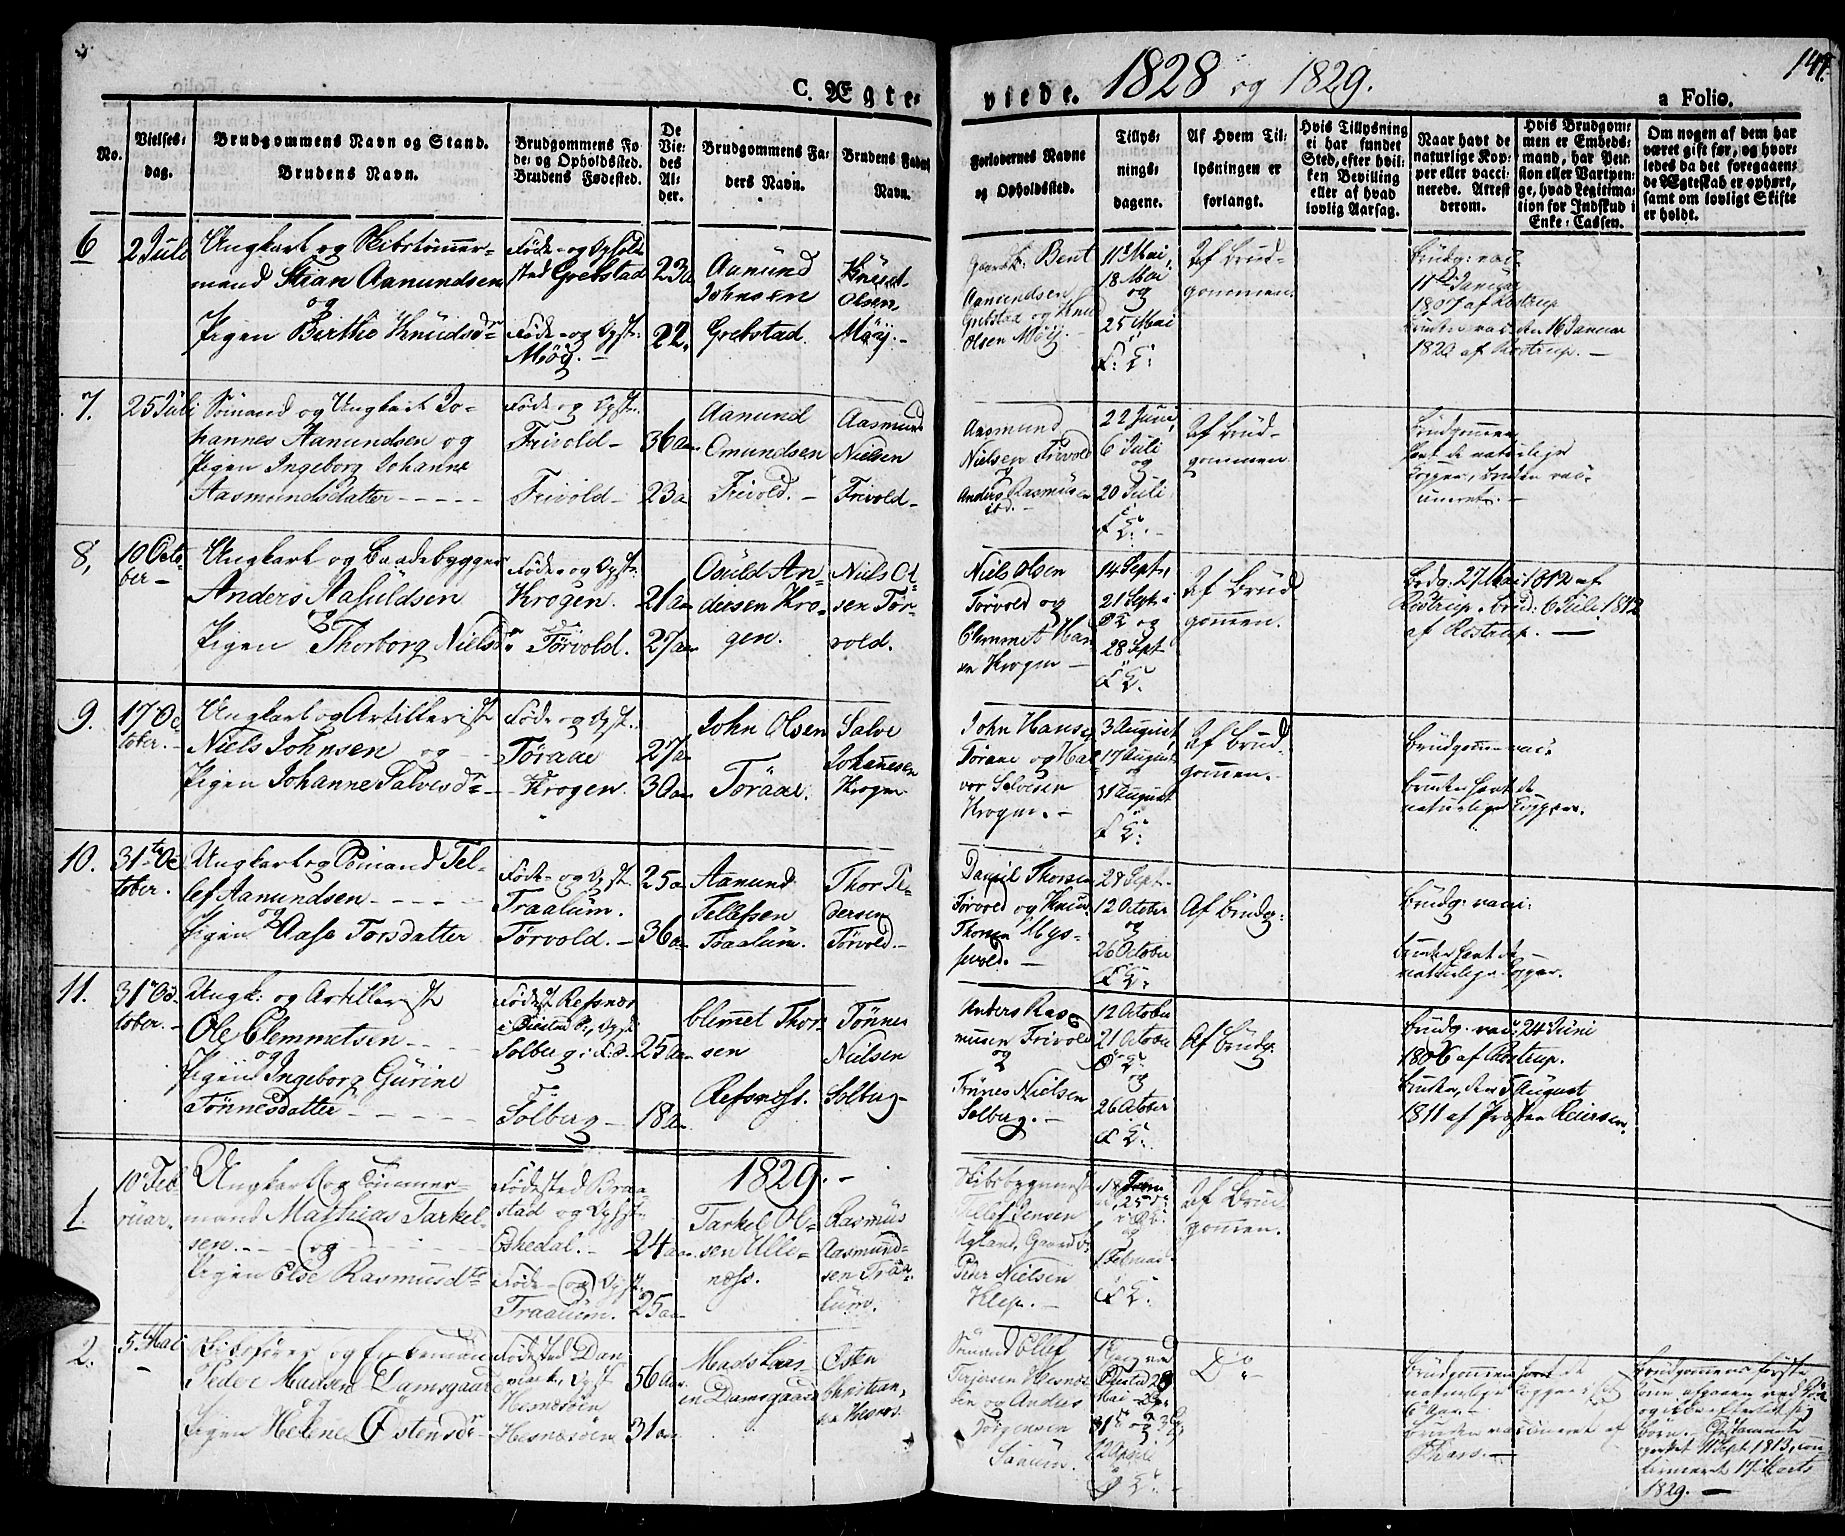 C. Ægte-
viede. 1828 og 1829.
a Folio.
No.
Vielses-
dag.
Brudgommens Navn og Stand.
Brudens Navn.
Brudgommens Fø-
de- og Opholdssted.
Brudens Fødested.
De
Vie-
des
Al-
der.
Brudgommens Fa-
ders Navn.
Brudens Faders
Navn.
Forlovernes Navne
og Opholdssted.
Tillys-
nings-
dagene.
Af Hvem Til-
lysningen er
forlangt.
Hvis Tillysning
ei har fundet
Sted, efter hvil-
ken Bevilling
eller af hvad
lovlig Aarsag.
Naar havt de
naturlige Kop-
per eller vacci-
nerede. Attest
derom.
Hvis Brudgom-
men er Embeds-
mand, har Pen-
sion eller Vartpen-
ge, hvad Legitima-
tion for Indskud i
Enke-Cassen.
Om nogen af dem har
været gift før, og hvor-
ledes da det foregaaen-
de Ægteskab er ophørt,
samt om lovligt Skifte
er holdt.
6
2 Juli
Ungkarl og Skibstømmer-
mand Stian Aanundsen
og
Pigen Birthe Knudsdr
Føde- og Opholds
sted Grebstad
Føde- og Opst:
Møg. -
23a
22.
Aanund
Johnsen
Grebstad.
Knud
Olsen
Møg. -
Gaardbr: Bent
Aanundsen
Grebstad og Knud
Olsen Møg.
11te Mai,
18 Mai
og
25 Mai
Af Brud-
gommen.
Brudg: vac:
11te Januar
1807 af Rostrup
Bruden vac. den 16 Januar
1820 af Rostrup. -
7.
25 Juli
Sømand og Ungkarl Jo-
hannes Aanundsen og
Pigen Ingeborg Johanne
Aasmundsdatter - - - -
Føde og Opst:
Frivold -
Frivold -
36a
23a
Aanund
Omundsen
Frivold. -
Aasmund
Nielsen
Frivold -
Aasmund
Nielsen Frivold
og
Anders Rasmusen
ibd. -
22 Juni,
6 Juli
og
20 Juli
Af Brud-
gommen
Brudgommen
havt de naturlige
Kopper, Bruden vac-
cineret. -
8,
10 Octo-
ber -
Ungkarl og Baadebygger
Anders Aasuldsen
og
Pigen Thorborg Nielsdr
Føde- og Opst:
Krogen.
Do Tørvold.
21a
27a
Osuld An-
dersen Kro-
gen.
Niels Ol-
sen Tør-
vold.
Niels Olsen
Tørvold og
Clemmet Han
sen Krogen -
14 Sept,
21 Sept:
og
28 Sept
Af Brud
gommen.
Brdg: 27 Mai 1812 af
Rostrup, Brud: 6 Juli 1812
af Rostrup. -
9.
17de Oc
tober. -
Ungkarl og Artillerist
Niels Johnsen og
Pigen Johanne Salvesdr -
Føde- og Opst:
Tøraae
- Krogen.
27a
30a
John Olsen
Tøraae.
Salve
Johannesen
Krogen
John Hansen
Tøraae og Hal-
vor Salvesen
Krogen. -
3 August,
17 August
og
31 August
Af Brud-
gommen. -
Brudgommen vac:
Bruden havt de
naturlige Kopper.
10.
31te Oc
tober.
Ungkarl og Sømand Tel-
lef Aanundsen - - - -
og
Pigen Aase Torsdatter
Føde- og Opst.
Traalum.
Tørvold. -
25a
36a
Aanund
Tellefsen
Traalum.
Thor Pe-
dersen
Tørvold -
Daniel Thorsen
Tørvold og Knud
Thorsen
28 Sept -
12 October
og
26 October
Af Brudg:
Brudg: vacc:
Bruden havt de
naturlige Kopper.
11.
31te Oc-
tober. -
Ungk: og Artillerist
Ole Clemmetsen - - -
og
Pigen Ingeborg Gurine
Tønnesdatter - - - -
Fødest. Refsnæs
Solberg
Do
Solberg -
25a
18a
Clemet Thor-
sen
Refsness.
Tønnes
Nielsen
Solberg -
Anders Ras-
musen Frivold
og
Tønnes Nielsen
Solberg. -
12 October
21 October
og
26 October
Af Brudg:
Brudg: vac: 24 Juni
1806 af Rostrup.
Bruden, den 5 August
1811 af Præsten Reiersen.
1829. -
1.
10de Feb
ruar.
Ungkarl og Tømmer-
mand Mathias Tarkel-
sen. - - - og - - -
Pigen Else Rasmusdtr
Fødested Braa-
stad og Opst
Føde- og Opst.
Traalum.
24a
25a
Tarkel Ol-
sen Ulle-
næss.
Rasmus
Aasmund-
sen Traa-
lum.
Skibsbygmest.
Tellef Jensen
Agland, Gaardb.
Peder Nielsen
Klep. -
1 Februar
Af Brud
gommen.
2.
5 Mai
-
og Enkemand
Peder Madsen Damsgaard
og
Pigen Helene Østensdr
Fødested Dan
mark, Opst
Hesnæsøen
Hesnæsøen
56 Aar
31a
Mads Lars
en Damsgaard
Østen
Christian-
sen Hesnæs.
Sømand Ellef
Terjesen Hesnæs-
øen og Anders
Jørgensen
12 April
Do -
Brudgommen havt de
naturlige Kopper
6 Aar -
Bruden vaccineret af
Brudgommens første
Kone
og ikke efterladt sig
Børn.
11 Sept. 1813,
17 Marts
1829. -